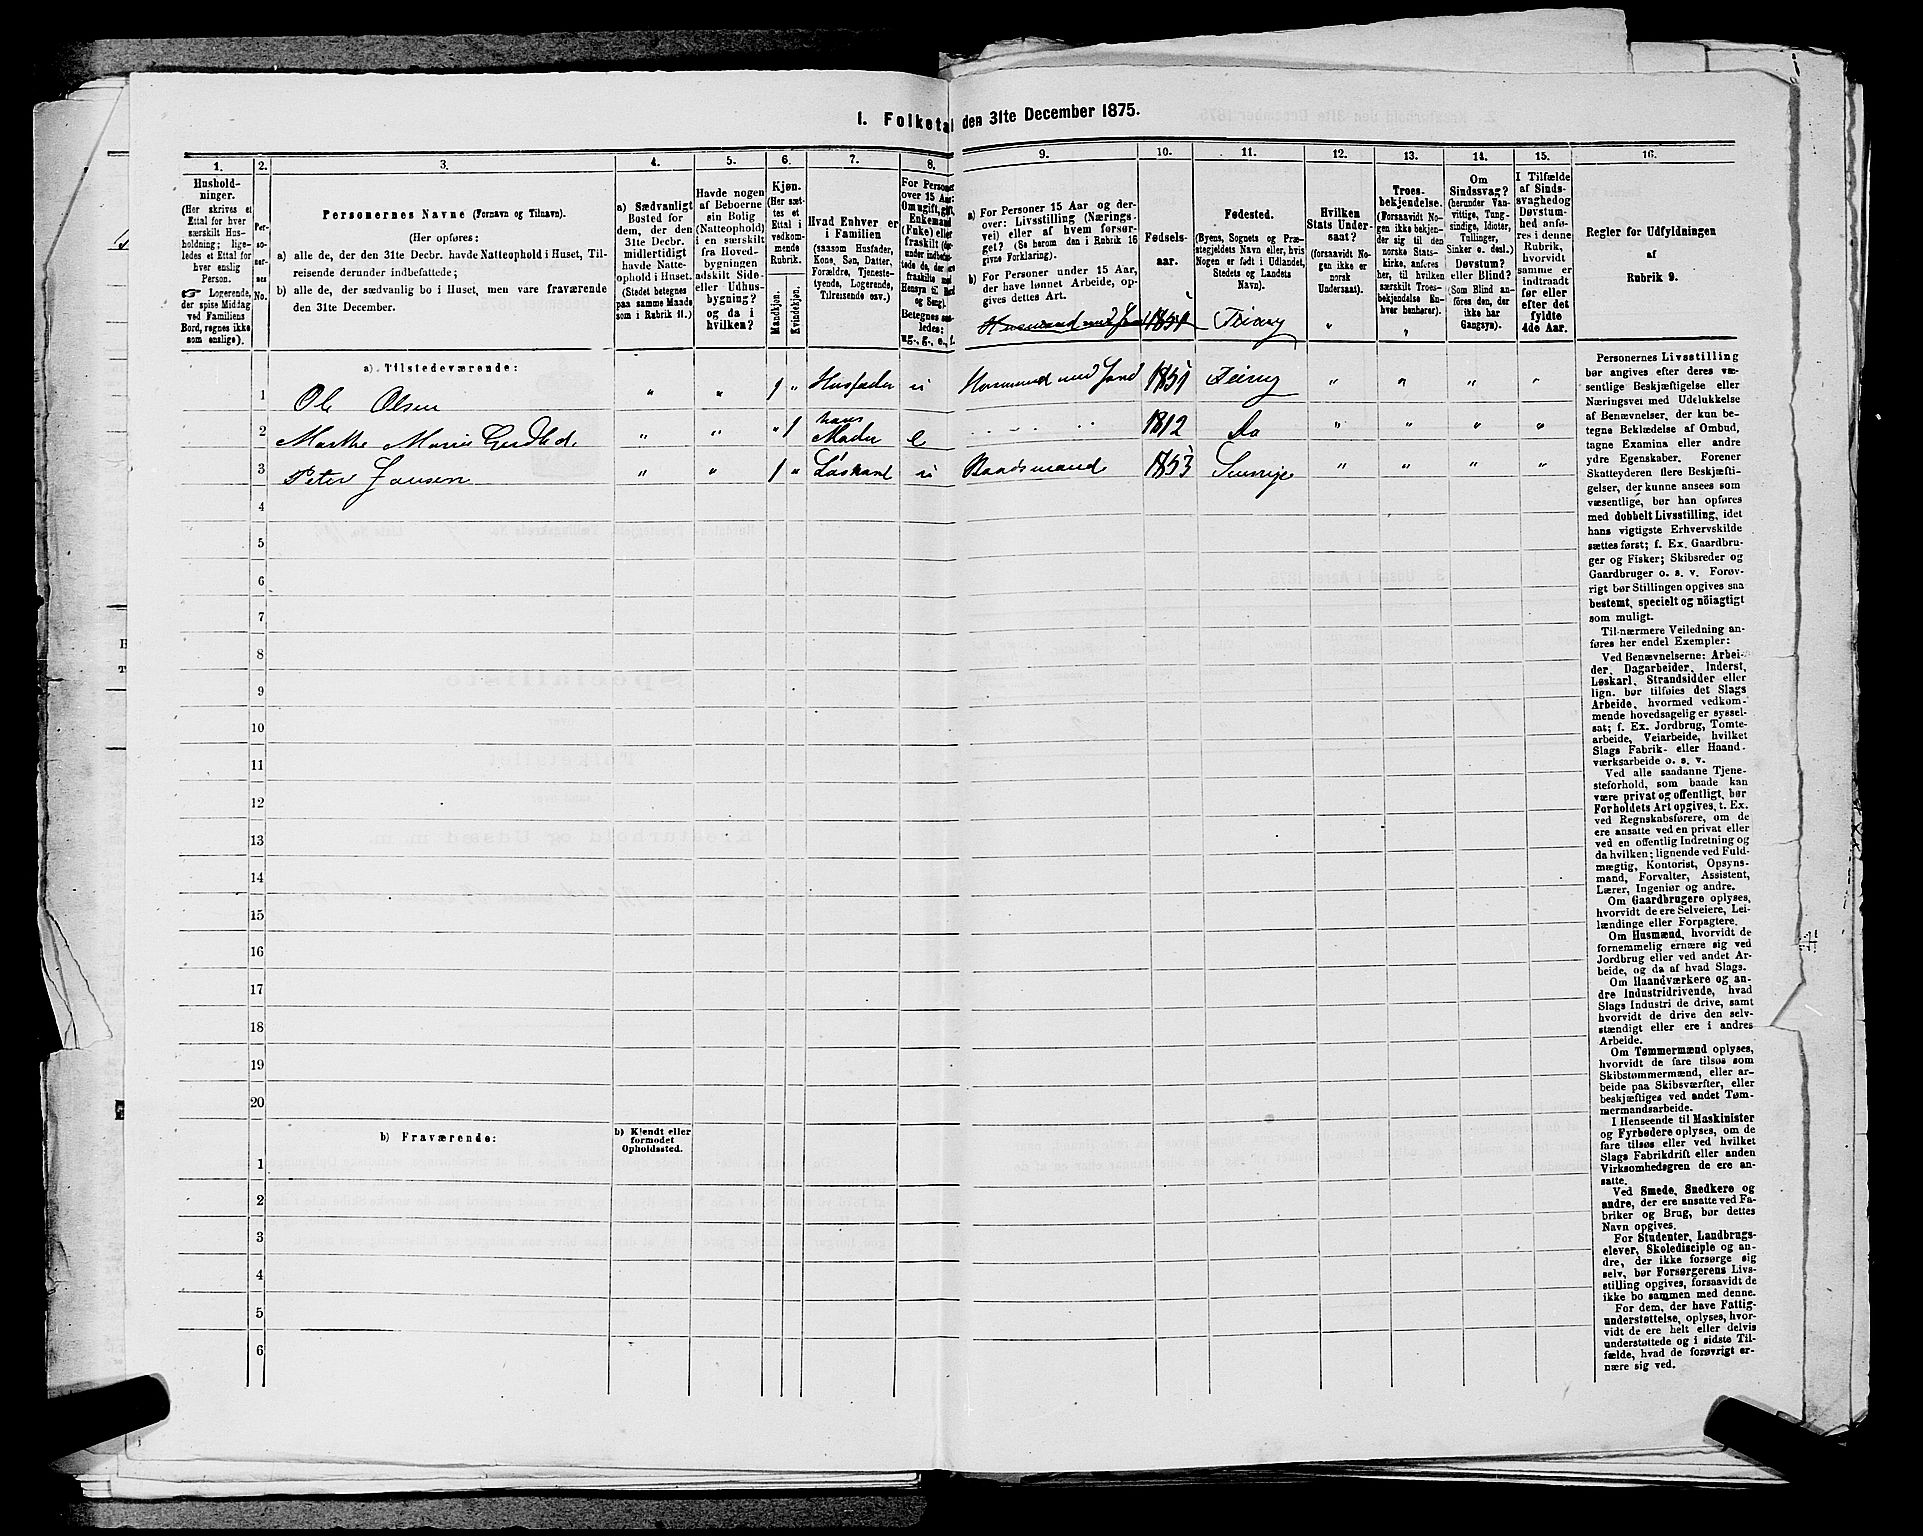 1. Folketal den 31te December 1875.
1.
2.
3.
4.
5.
6.
7.
8.
9.
10.
11.
12.
13.
14.
15.
16.
Hushold-
ninger.
(Her skrives et
Ettal for hver
særskilt Hus-
holdning; lige-
ledes et Ettal for
hver enslig
Person.
☞ Logerende,
der spise Middag
ved Familiens
Bord, regnes ikke
som enslige).
Per-
so-
ner-
nes
No.
Personernes Navne (Fornavn og Tilnavn).
(Her opføres:
a) alle de, der den 31te Decbr. havde Natteophold i Huset, Til-
reisende derunder indbefattede;
b) alle de, der sædvanlig bo i Huset, men vare fraværende
den 31te December.
a) Sædvanligt
Bosted for
dem, der den
31te Decbr.
midlertidigt
havde Natte-
ophold i Huset.
(Stedet betegnes
paa samme Maade
som i Rubrik 11.)
Havde nogen
af Beboerne
sin Bolig
(Natteophold)
i en særskilt
fra Hoved-
bygningen
adskilt Side-
eller Udhus-
bygning?
og da i
hvilken?
Kjøn.
(Her sæt-
tes et
Ettal i
vedkom-
mende
Rubrik.
Mandkjøn.
Kvindekjøn.
Hvad Enhver er
i Familien
(saasom Husfader,
Kone, Søn, Datter,
Forældre, Tjeneste-
tyende, Logerende,
Tilreisende osv.)
For Personer
over 15 Aar:
Om ugift, gift,
Enkemand
(Enke) eller
fraskilt
Betegnes saa-
ledes:
ug., g., e., f.
a) For Personer 15 Aar og der-
over: Livsstilling (Nærings-
vei) eller af hvem forsør-
get? (Se herom den i Rubrik 16
givne Forklaring).
b) For Personer under 15 Aar,
der have lønnet Arbeide, op-
gives dettes Art.
Fødsels-
aar.
Fødested.
(Byens, Sognets og Præ-
stegjeldets Navn eller, hvis
Nogen er født i Udlandet,
Stedets og Landets
Navn).
Hvilken
Stats Under-
saat?
(forsaavidt No-
gen ikke er
norsk
Undersaat).
Troes-
bekjendelse.
(Forsaavidt No-
gen ikke bekjen-
der sig til den
norske Stats-
kirke, anføres
her, til hvilken
særskilt Troes-
bekjendelse En-
hver henhører).
Om
Sindssvag?
(herunder Van-
vittige, Tung-
sindige, Idioter,
Tullinger,
Sinker o. desl.)
Døvstum?
eller Blind?
(Som Blind an-
føres den, der
ikke har
Gangsyn).
I Tilfælde
af Sinds-
svaghed og
Døvstum-
hed anfø-
res i denne
Rubrik,
hvorvidt
samme er
indtraadt
før eller
efter det
fyldte
4de Aar.
Regler for Udfyldningen
af
Rubrik 9.
Husmand med Jord 1851 "
a) Tilstedeværende:
1 Ole Olsen " " 1 " Husfader ú Husmand med Jord 1851 " " " "
2 Marthe Marie " " " 1 hans Moder e 1812 Do " " " "
3 Peter Jansen " " 1 " Løskarl ú 1853 " " " "
4
5
6
7
8
9
10
11
12
13
14
15
16
17
18
19
20
b) Fraværende:
b) Kjendt eller
formodet
Opholdssted.
1
2
3
4
5
6
Personernes Livsstilling
bør angives efter deres væ-
sentlige Beskjæftigelse eller
Næringsvei med Udelukkelse
af Benævnelser, der kun be-
tegne Beklædelse af Ombud,
tagne Examina eller andre
ydre Egenskaber. Forener
Skatteyderen flere Beskjæfti-
gelser, der kunne ansees som
væsentlige, bør han opføres
med dobbelt Livsstilling, idet
hans vigtigste Erhvervskilde
sættes først; f. Ex. Gaardbru-
ger og Fisker; Skibsreder og
Gaardbruger o. s. v. Forøv-
rigt bør Stillingen opgives saa
bestemt, specielt og nöiagtigt
som muligt.
Til nærmere Veiledning an-
føres her endel Exempler:
Ved Benævnelserne: Arbei-
der, Dagarbeider, Inderst,
Løskarl, Strandsidder eller
lign. bør tilføies det Slags
Arbeide, hvormed vedkom-
mende hovedsagelig er syssel-
sat; f. Ex. Jordbrug, Tomte-
arbeide, Veiarbeide, hvilket
Slags Fabrik- eller Haand-
værksarbeide o. s. v.
Ved alle saadanne Tjene-
steforhold, som baade kan
være privat og offentligt, bør
Forholdets Art opgives, t. Ex.
ved Regnskabsførere, om de
ere ansatte ved en privat eller
ved en offentlig Indretning og
da hvilken; lignende ved Fuld-
mægtig, Kontorist, Opsyns-
mand, Forvalter, Assistent,
Lærer, Ingeniør og andre.
Om Gaardbrugere oplyses,
hvorvidt de ere Selveiere, Lei-
lændinge eller Forpagtere.
Om Husmænd, hvorvidt de
fornemmelig ernære sig ved
Jordbrug eller ved andet Ar-
beide, og da af hvad Slags.
Om Haandværkere og an-
dre Industridrivende, hvad
Slags Industri de drive, samt
hvorvidt de drive den selv-
stændigt eller ere i andres
Arbeide.
Om Tømmermænd oplyses,
hvorvidt de fare tilsøs som
Skibstømmermænd, eller ar-
beide paa Skibsværfter, eller
beskjæftiges ved andet Tøm-
mermandsarbeide.
I Henseende til Maskinister
og Fyrbødere oplyses, om de
fare tilsøs eller ved hvilket
Slags Fabrikdrift eller anden
Virksomhedsgren de ere an-
satte.
Ved Smede, Snedkere og
andre, der ere ansatte ved Fa-
briker og Brug, bør dettes
Navn opgives.
For Studenter, Landbrugs-
elever, Skoledisciple og an-
dre, der ikke forsørge sig
selv, bør Forsørgerens Livs-
stilling opgives, forsaavidt de
ikke bo sammen med denne.
For dem, der have Fattig-
understøttelse, oplyses, hvor-
vidt de ere helt eller delvis
understøttede og i sidste Til-
fælde, hvad de forøvrigt er-
nære sig ved.